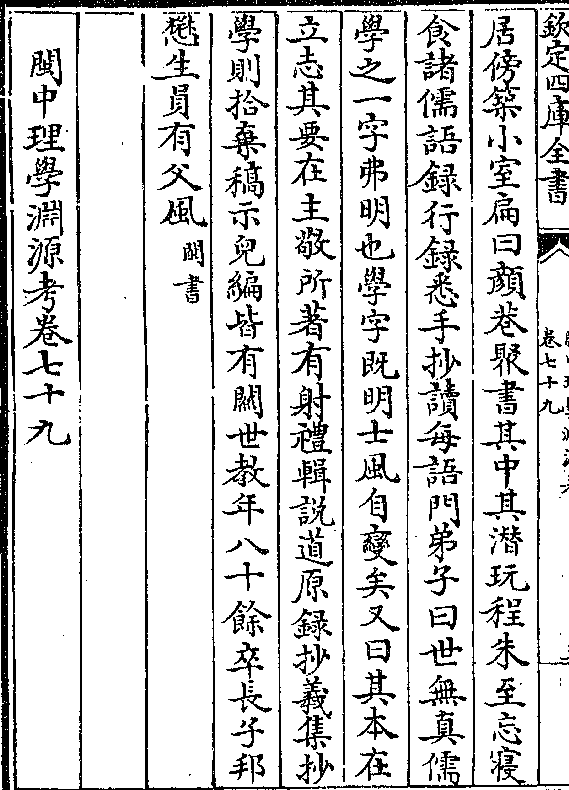 欽定四庫全書
卷七十九
居傍築小室扁曰顔巷聚書其中其潛玩程朱至忘寝
食諸儒語録行録悉手抄讀每語門弟子曰世無真儒
學之一字弗明也學字既明士風自變矣又曰其本在
立志其要在主敬所著有射禮輯説道原録抄義集抄
學則拾棄稿示兒編皆有闗世教年八十餘卒長子邦
懋生員有父風 閩書
閩中理學淵源考卷七十九